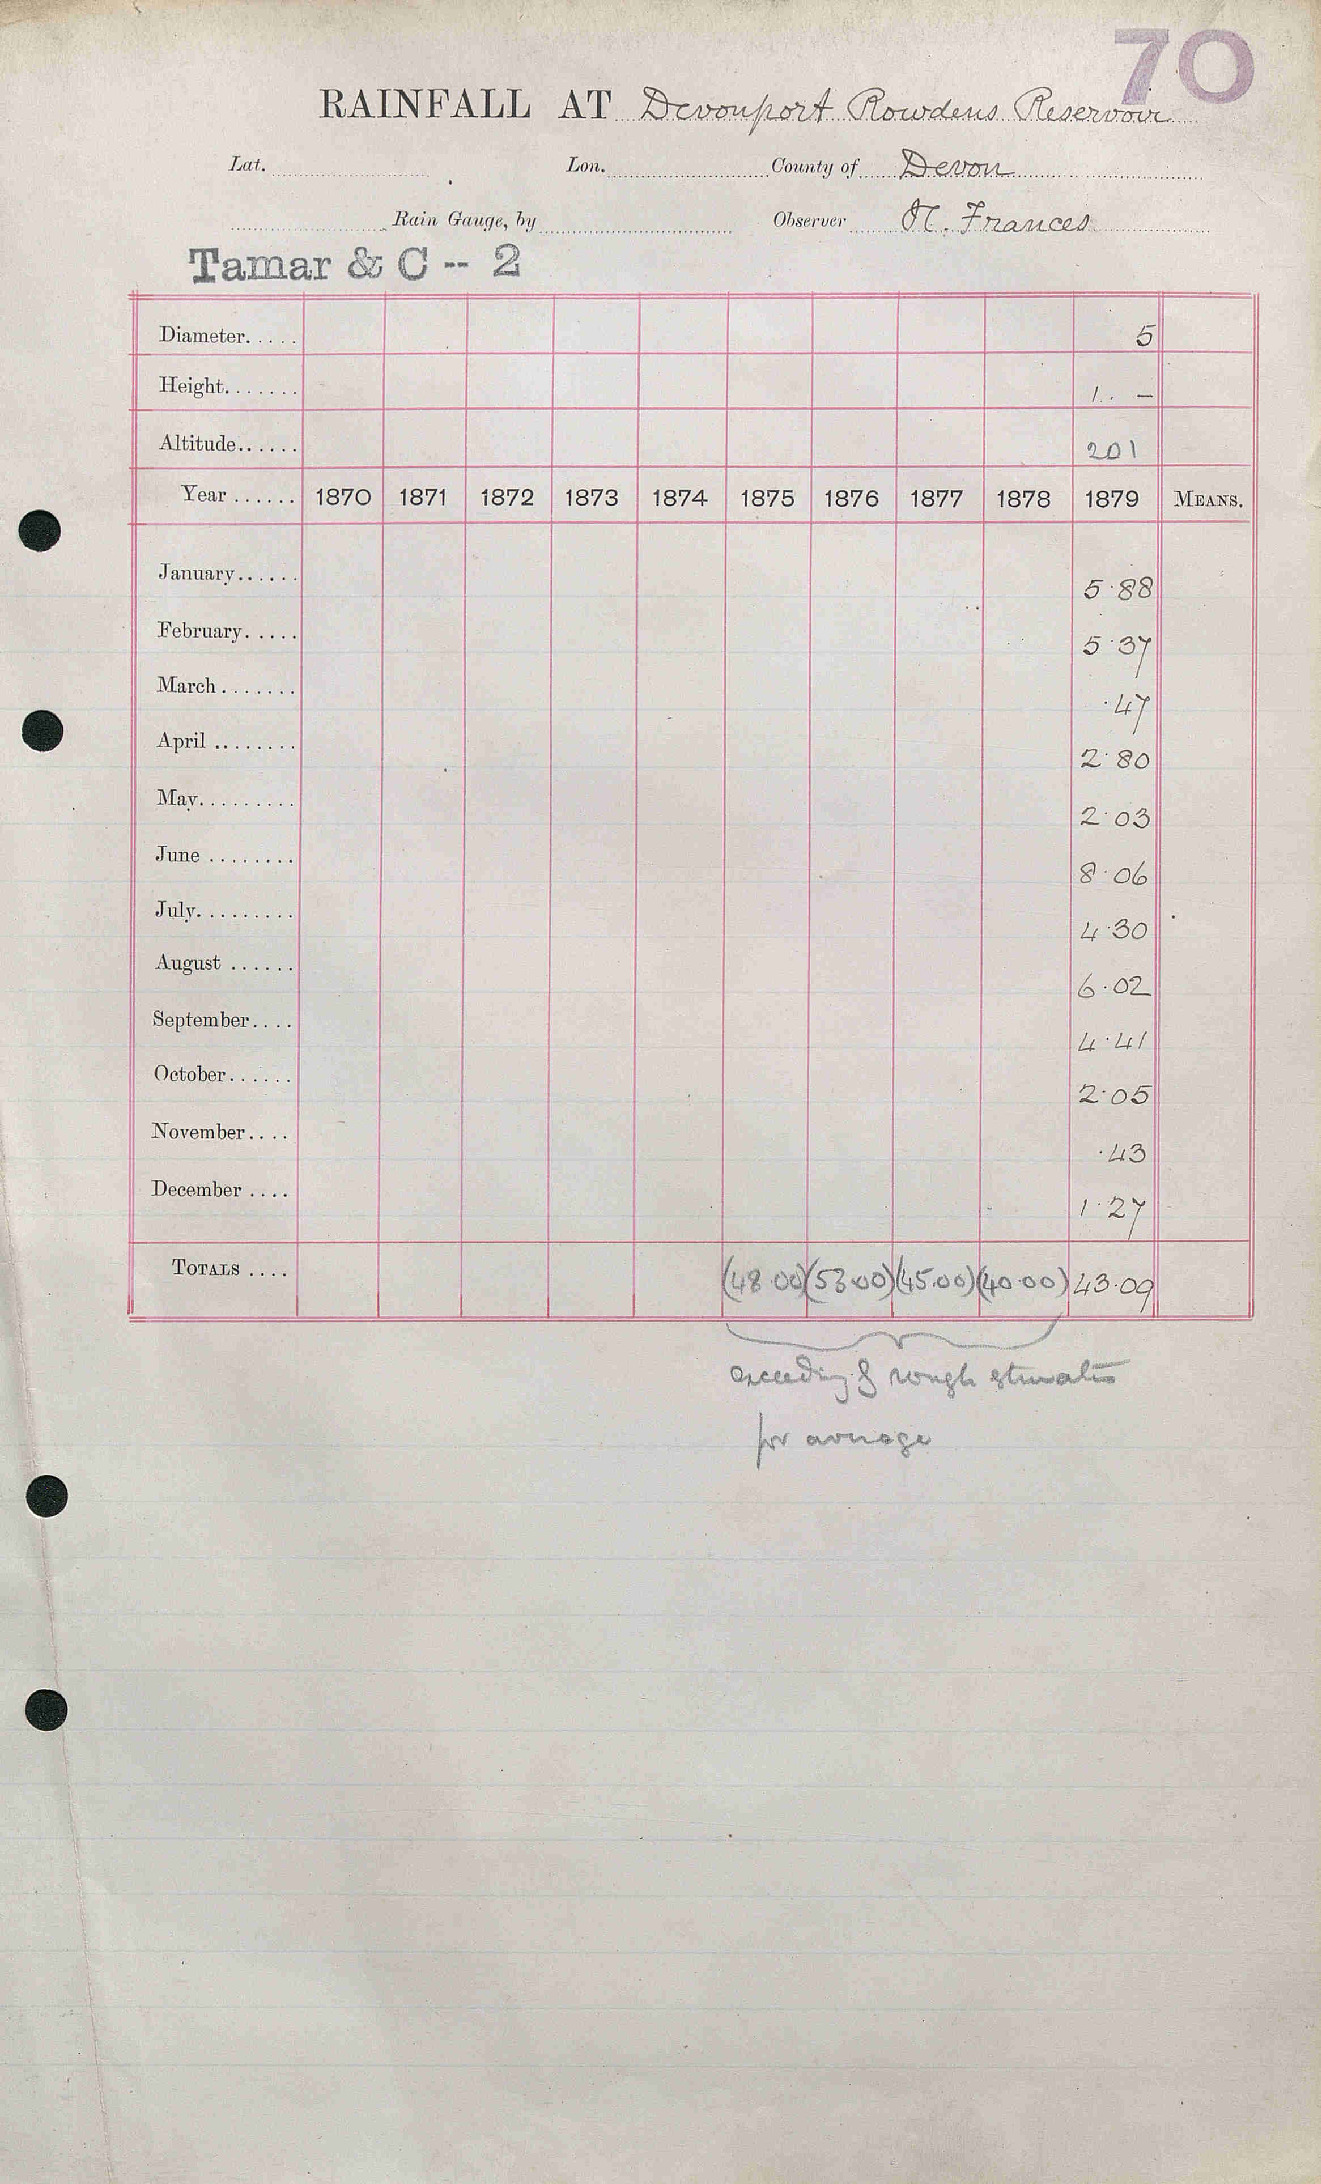 70
RAINFALL AT Devonport Rowdens Reservoir
Lat. Lon. County of Devon
Rain Gauge, by Observer Frances
Tamar & C -- 2
Diameter..... 5
Height....... 1. –
Altitude...... 201
Year...... 1870 1871 1872 1873 1874 1875 1876 1877 1878 1879 MEANS.
January...... 5.88
February..... 5.37
March....... .47
April........ 2.80
May......... 2.03
June........ 8.06
July......... 4.30
August...... 6.02
September.... 4.41
October...... 2.05
November.... .43
December.... 1.27
TOTALS.... (48.00) (53.00) (45.00) (40.00) 43.09
exceedingly rough estimates
for average